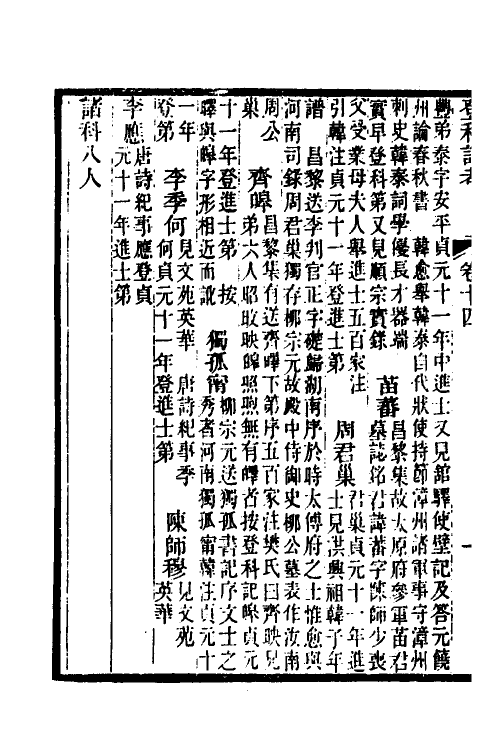 登科記考　卷十四　一
豐弟泰字安平貞元十一年中進士又見館驛使壁記及答元饒
州論春秋書　韓愈舉韓泰自代狀使持節漳州諸軍事守漳州
刺史韓泰詞學優長才器端
實早登科第又見順宗實錄　苗蕃昌黎集故太原府參軍苗君
墓誌銘君諱蕃字陳師少喪
父受業母夫人舉進士五百家注
引韓注貞元十一年登進士第　周君巢君巢貞元十一年進
士見洪興祖韓子年
譜　昌黎送李判官正字礎歸湖南序於時太傅府之士惟愈與
河南司錄周君巢獨存柳宗元故殿中侍御史柳公墓表作汝南
周公
巢　齊皞昌黎集有送齊皞下第序五百家注樊氏曰齊映兄
弟六人昭旼映皞照煦無有皞者按登科記皞貞元
十一年登進士第　按
皞與皞字形相近而訛　獨孤甯柳宗元送獨孤書記序文士之
秀者河南獨孤甯韓注貞元十
一年
登第　李季何見文苑英華　唐詩紀事季
何貞元十一年登進士第　陳師穆見文苑
英華
李應唐詩紀事應登貞
元十一年進士第
諸科八人